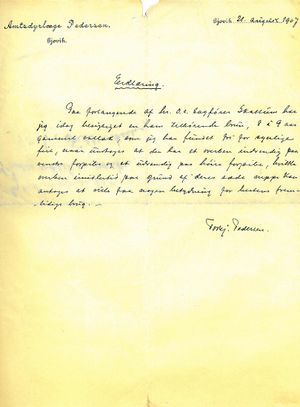 Amtsdyrlæge Pedersen.
Gjøvik.
Gjøvik 21. August 1907
Erklæring.
Paa forlangende af hr. O.L. sagfører har
jeg idag besigtiget en ham tilhørende brun, 8 à 9 aar
gammel vallak, som jeg har fundet fri for synlige
feil, naar undtages at den har et overben indvendig paa
venstre forpibe og et udvendig paa høire forpibe, hvilke
overben imidlertid paa grund af deres sæde neppe kan
antages at ville faa nogen betydning for hestens frem-
tidige brug. —
Pedersen.